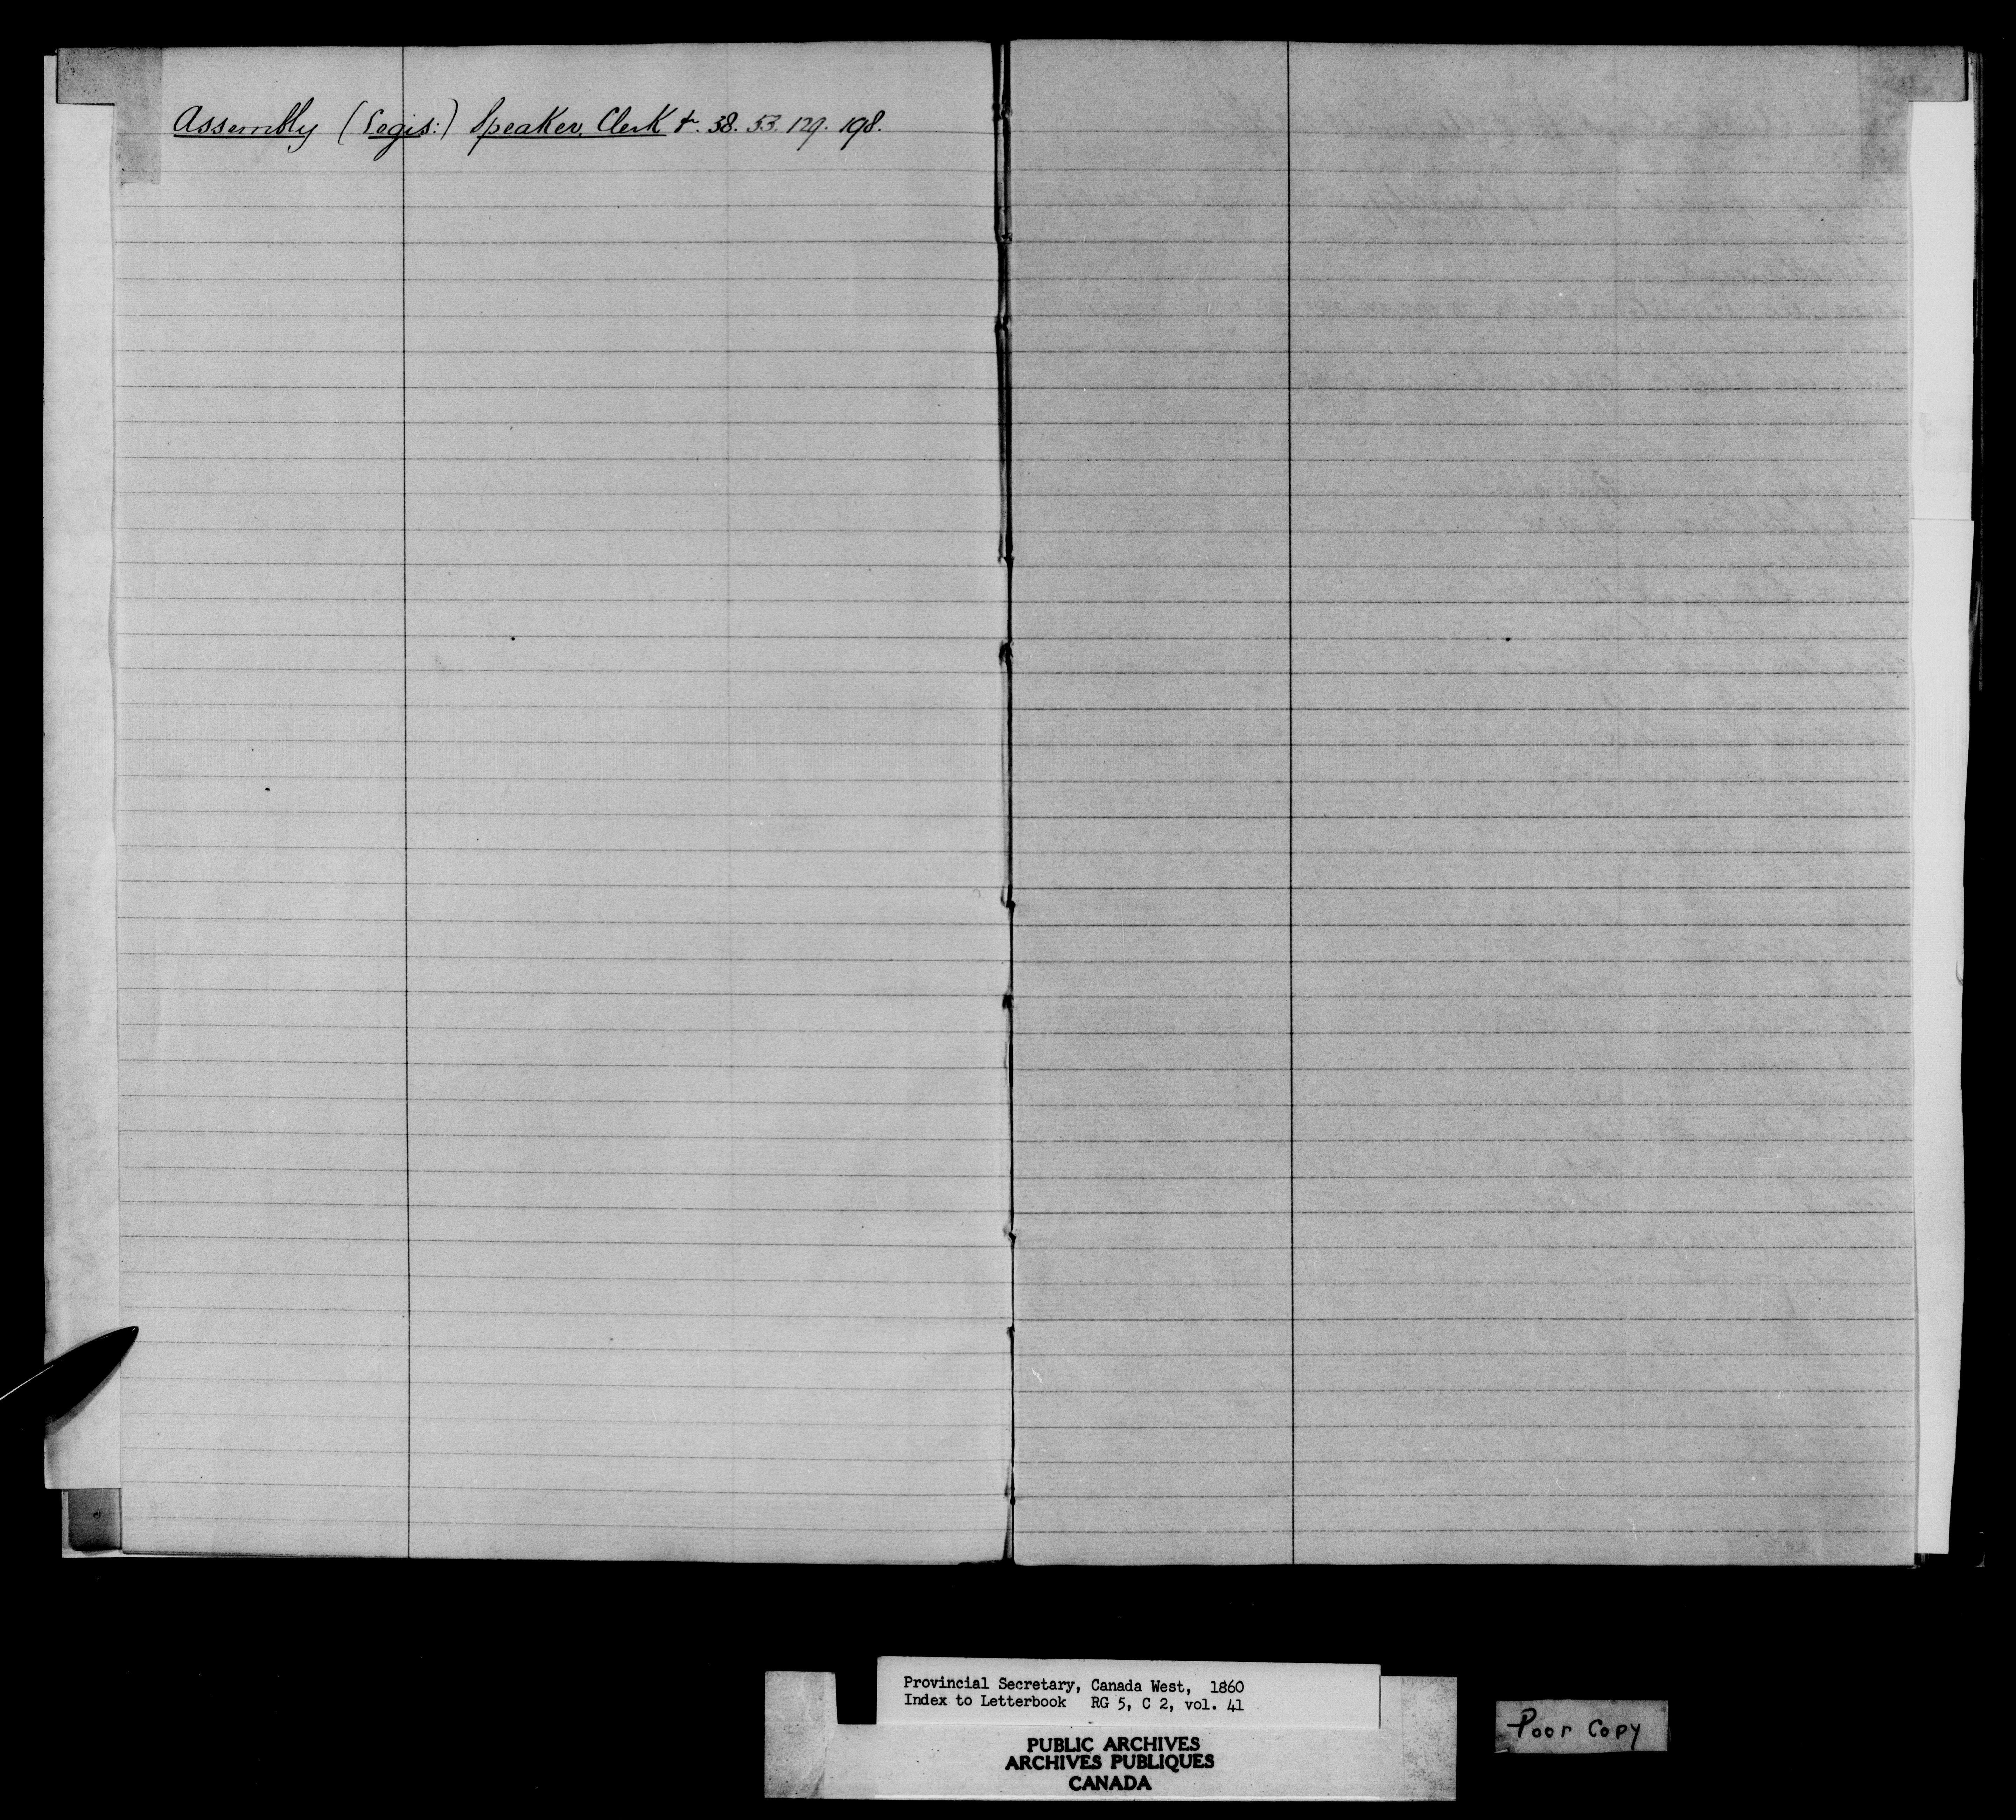 Assembly (Legis:) Speaker, Clerk &. 38. 53. 129. 198.
Provincial Secretary, Canada West, 1860
Index to Letterbook RG 5, C 2, vol. 41
PUBLIC ARCHIVES
ARCHIVES PUBLIQUES
CANADA
Poor Copy